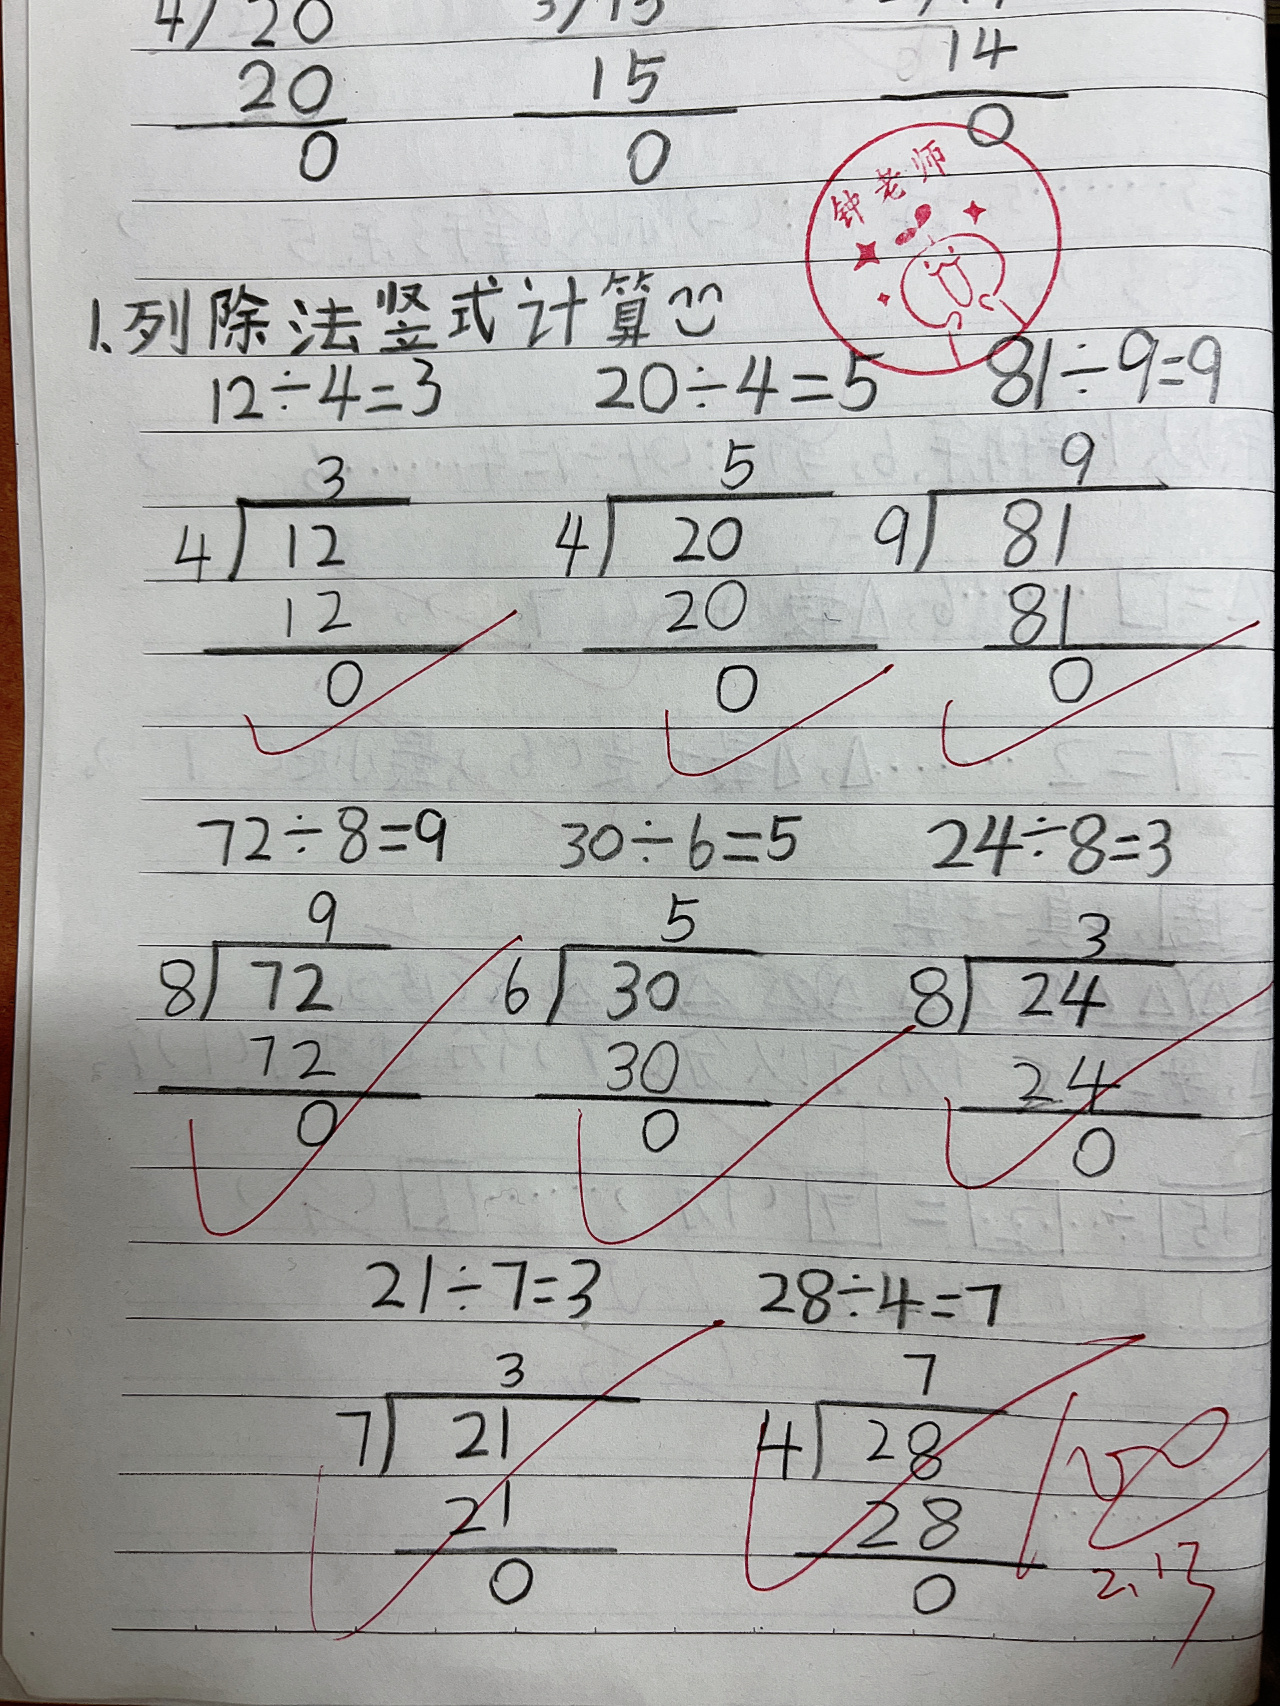 4) 20
20 15 14
0 0 0
钟老师
1.列除法竖式计算
12÷4=3 20÷4=5 81÷9=9
3 5 9
4) 12 4) 20 9) 81
12 20 81
0 0 0
72÷8=9 30÷6=5 24÷8=3
9 5 3
8) 72 6) 30 8) 24
72 30 24
0 0 0
21÷7=3 28÷4=7
3 7
7) 21 4) 28
21 28
0 0
100